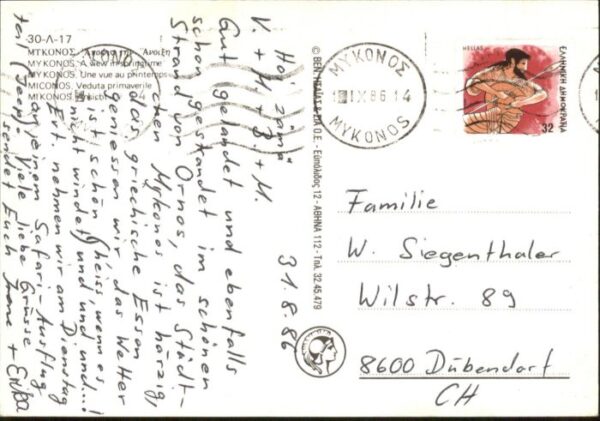 30-Λ-17
ΜΥΚΟΝΟΣ Άποψη της Άνοιξη
MYCONOS. A view in springtime
MYCONOS. Une vue au printemps
MICONOS. Veduta primaverile
MIKONOS. Ansicht
© BEN O.E. - Ευπόλιδος 12 - ΑΘΗΝΑ 112 - Τηλ. 32.45.479
Hoi zäme
V. + M. + B. + M.
Gut gelandet und ebenfalls
schon gestrandet im schönen
Strand von Ornos, das Städt-
chen Mykonos ist härzig,
das griechische Essen
geniessen wir, das Wetter
ist schön (heiss, wenn es
nicht windet) und und...!
Evt. nehmen wir am Dienstag
an einem Safari-Ausflug
teil (Jeep). Viele liebe Grüsse
sendet Euch Irene + Erika
31.8.86
ΜΥΚΟΝΟΣ
IX 86 14
MYKONOS
HELLAS
ΕΛΛΗΝΙΚΗ ΔΗΜΟΚΡΑΤΙΑ
32
Familie
W. Siegenthaler
Wilstr. 89
8600 Dübendorf
CH